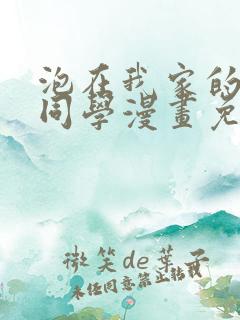 泡在我家的
同學漫畫免
微笑de葉子
未任同意禁止轉載